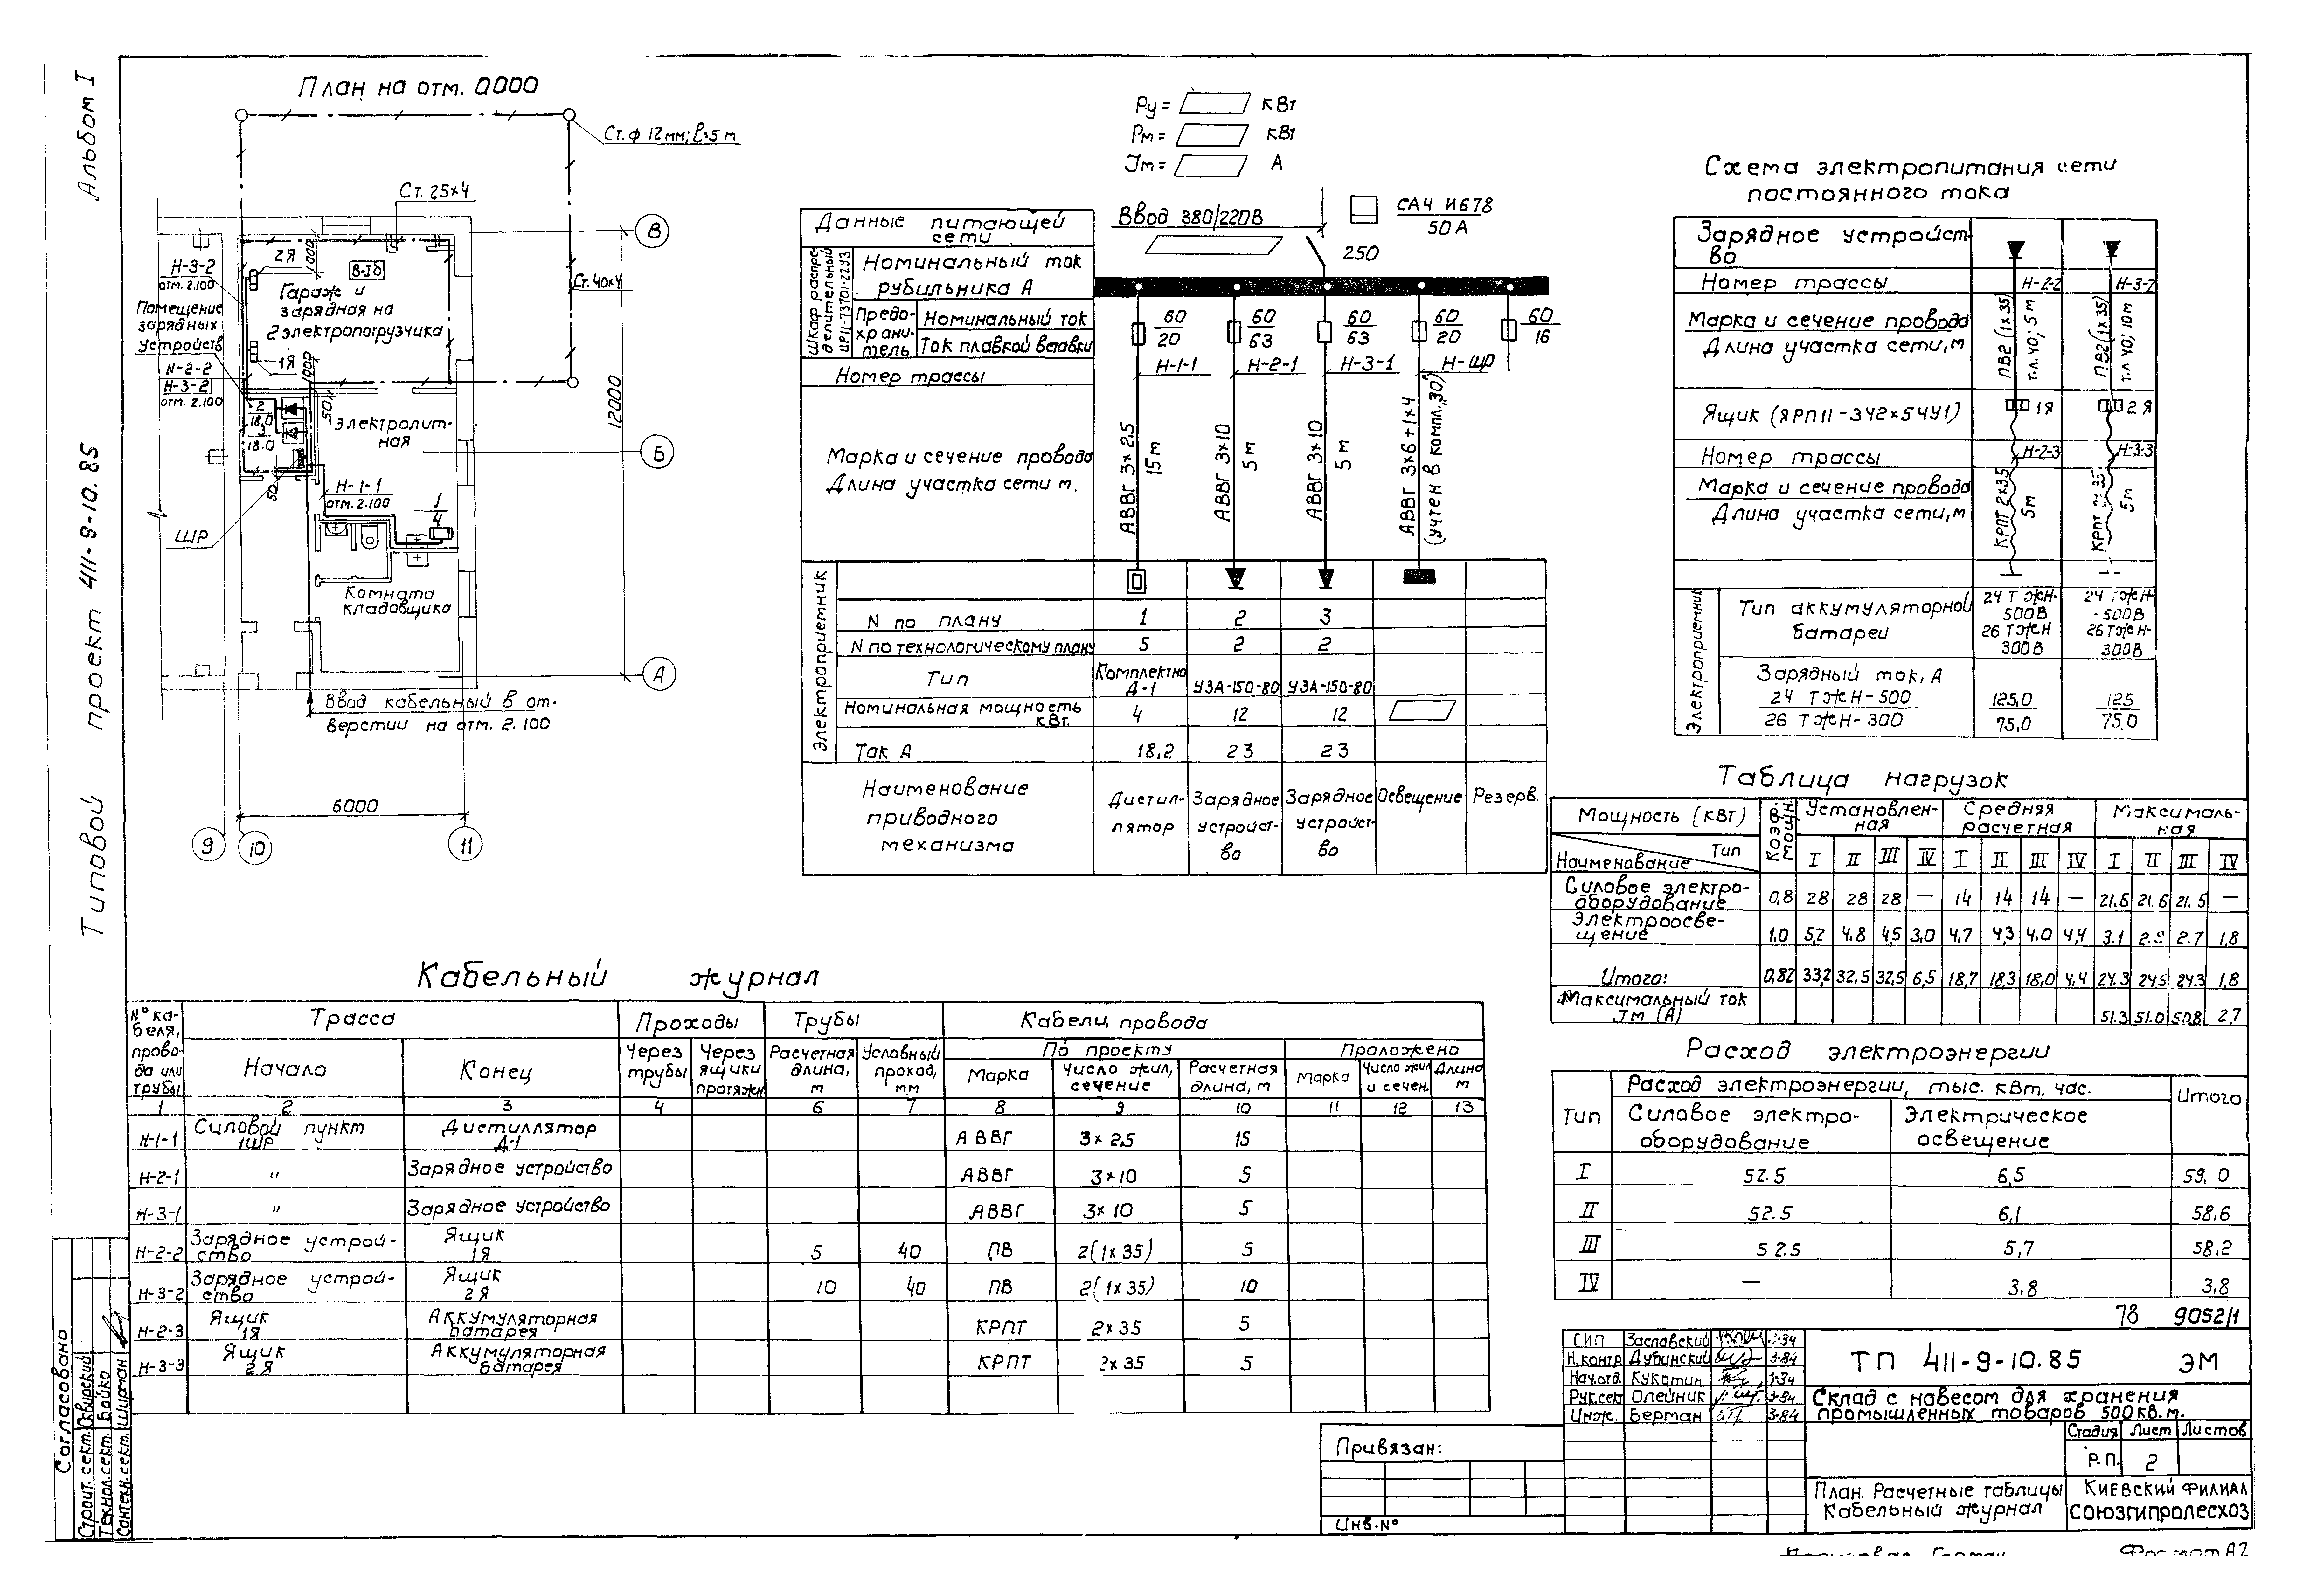 Альбом I
Типовой проект 411-9-10.85
План на отм. 0000
Ст. ф 12 мм; ℓ=5 м
Ст. 25×4
В
2Я
1000
Н-3-2
отм. 2.100
В-Iб
Гараж и
зарядная на
2 электропогрузчика
Ст. 40×4
Помещение
зарядных
устройств
1Я
1000
N-2-2
Н-3-2
отм. 2.100
50
2
18.0
3
18.0
Электролит-
ная
12000
Б
50
Н-1-1
отм. 2.100
1
4
ШР
Комната
кладовщика
А
Ввод кабельный в от-
верстии на отм. 2.100
6000
9
10
11
Ру= кВт
Рм= кВт
Jм= А
Данные питающей
сети
Ввод 380/220В
САЧ И678
50А
250
Шкаф распре-
делительный
ШР11-73701-22У3
Номинальный ток
рубильника А
Предо-
храни-
тель
Номинальный ток
Ток плавкой вставки
60
20
60
63
60
63
60
20
60
16
Номер трассы
Н-1-1
Н-2-1
Н-3-1
Н-ЩО
Марка и сечение провода
Длина участка сети м.
АВВГ 3×2.5
15м
АВВГ 3×10
5м
АВВГ 3×10
5м
АВВГ 3×6+1×4
(учтен в компл. "ЭО")
Электроприемник
N по плану 1 2 3
N по технологическому плану 5 2 2
Тип Комплектно Д-1 УЗА-150-80 УЗА-150-80
Номинальная мощность
кВт. 4 12 12
Ток А 18,2 23 23
Наименование
приводного
механизма
Дистил-
лятор
Зарядное
устройст-
во
Зарядное
устройст-
во
Освещение
Резерв.
Схема электропитания сети
постоянного тока
Зарядное устройст-
во
Номер трассы Н-2-2 Н-3-2
Марка и сечение провода
Длина участка сети, м
ПВ2 (1×35)
т.л. 40, 5м
ПВ2 (1×35)
т.л 40, 10м
Ящик (ЯРП11-342×54У1) 1Я 2Я
Номер трассы Н-2-3 Н-3-3
Марка и сечение провода
Длина участка сети, м
КРПТ 2×35
5м
КРПТ 2×35
5м
Электроприемник
Тип аккумуляторной
батареи
24 ТЖН-
500В
26 ТЖН
300В
24 ТЖН
-500В
26 ТЖН-
300В
Зарядный ток, А
24 ТЖН-500 125,0 125
26 ТЖН-300 75,0 75,0
Таблица нагрузок
Мощность (кВт)
Тип
Наименование
Коэф.
мощн.
Установлен-
ная
Средняя
расчетная
Максималь-
ная
I II III IV I II III IV I II III IV
Силовое электро-
оборудование 0,8 28 28 28 — 14 14 14 — 21.6 21.6 21.5 —
Электроосве-
щение 1.0 5,2 4.8 4,5 3,0 4.7 4,3 4.0 4,4 3.1 2.7 1,8
Итого: 0,82 33,2 32.5 32,5 6,5 18,7 18,3 18,0 4.4 24.3 24.5 24.3 1.8
Максимальный ток
Jм (А) 51.3 51.0 50.8 2.7
Расход электроэнергии
Тип
Расход электроэнергии, тыс. кВт. час.
Итого
Силовое электро-
оборудование
Электрическое
освещение
I 52.5 6,5 59,0
II 52.5 6,1 58,6
III 52.5 5,7 58,2
IV — 3.8 3,8
Кабельный журнал
N° ка-
беля,
прово-
да или
трубы
Трасса
Проходы
Трубы
Кабели, провода
Начало
Конец
Через
трубы
Через
ящики
протяжн
Расчетная
длина,
м
Условный
проход,
мм
По проекту
Проложено
Марка
Число жил,
сечение
Расчетная
длина, м
Марка
Число жил
и сечен.
Длина
м
1 2 3 4 6 7 8 9 10 11 12 13
Н-1-1 Силовой пункт 1ШР Дистиллятор Д-1 АВВГ 3×2.5 15
Н-2-1 " Зарядное устройство АВВГ 3×10 5
Н-3-1 " Зарядное устройство АВВГ 3×10 5
Н-2-2 Зарядное устрой-ство Ящик 1Я 5 40 ПВ 2(1×35) 5
Н-3-2 Зарядное устрой-ство Ящик 2Я 10 40 ПВ 2(1×35) 10
Н-2-3 Ящик 1Я Аккумуляторная батарея КРПТ 2×35 5
Н-3-3 Ящик 2Я Аккумуляторная батарея КРПТ 2×35 5
78 9052/1
ГИП Заславский
Н.контр Дубинский 3-84
Нач.отд. Кукотин
Рук.сект Олейник
Инж. Берман 3-84
ТП 411-9-10.85 ЭМ
Склад с навесом для хранения
промышленных товаров 500 кв. м.
Стадия Лист Листов
Р.П. 2
План. Расчетные таблицы
Кабельный журнал
Киевский филиал
Союзгипролесхоз
Привязан:
Инв.N°
Согласовано
Строит. сект. Сквирский
Технол. сект. Бойко
Сантехн. сект. Шурман
Формат А2